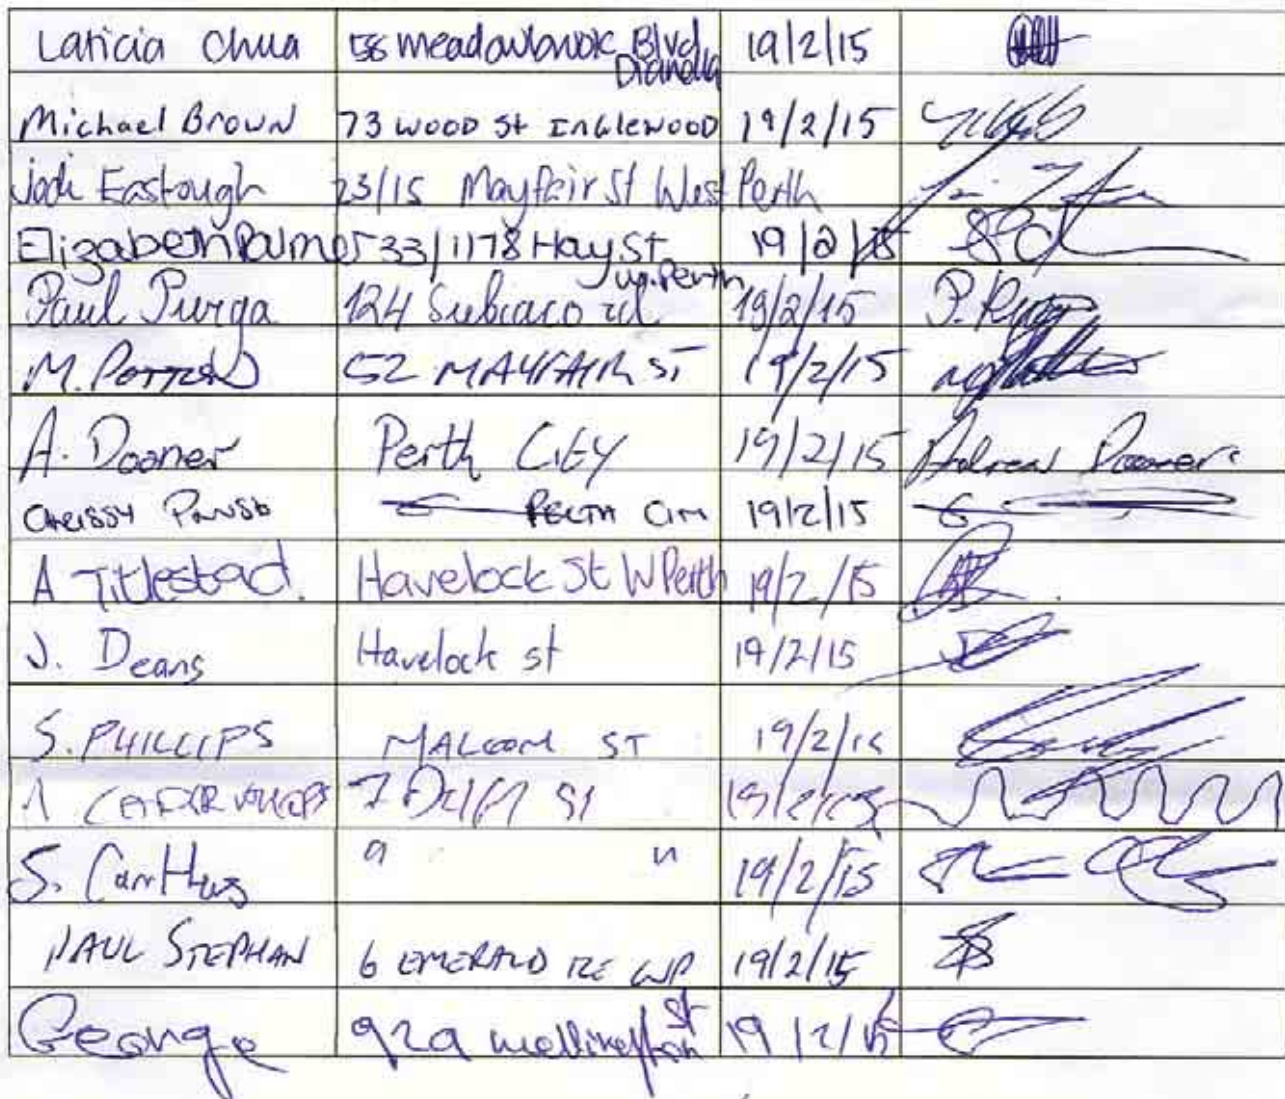 Laticia Chua 58 meadowbrook Blvd Dianella 19/2/15
Michael Brown 73 WOOD St INGLEWOOD 19/2/15
Jodi Eastough 23/15 Mayfair St West Perth
Elizabeth Palmer 533/1178 Hay St W.Perth 19/2/15
Paul Purga 124 Subiaco rd 19/2/15 P. Purga
M. 52 MAYFAIR ST 19/2/15
A. Dooner Perth City 19/2/15 Andrew Dooner
CHRISSY PERTH 19/2/15
A Titlestad. Havelock St W Perth 19/2/15
J. Deans Havelock st 19/2/15
S. PHILLIPS MALCOM ST 19/2/15
7 ST 19/2/15
S. " " 19/2/15
PAUL STEPHAN 6 EMERALD TCE WP 19/2/15
George 92a wellington St 19/2/15